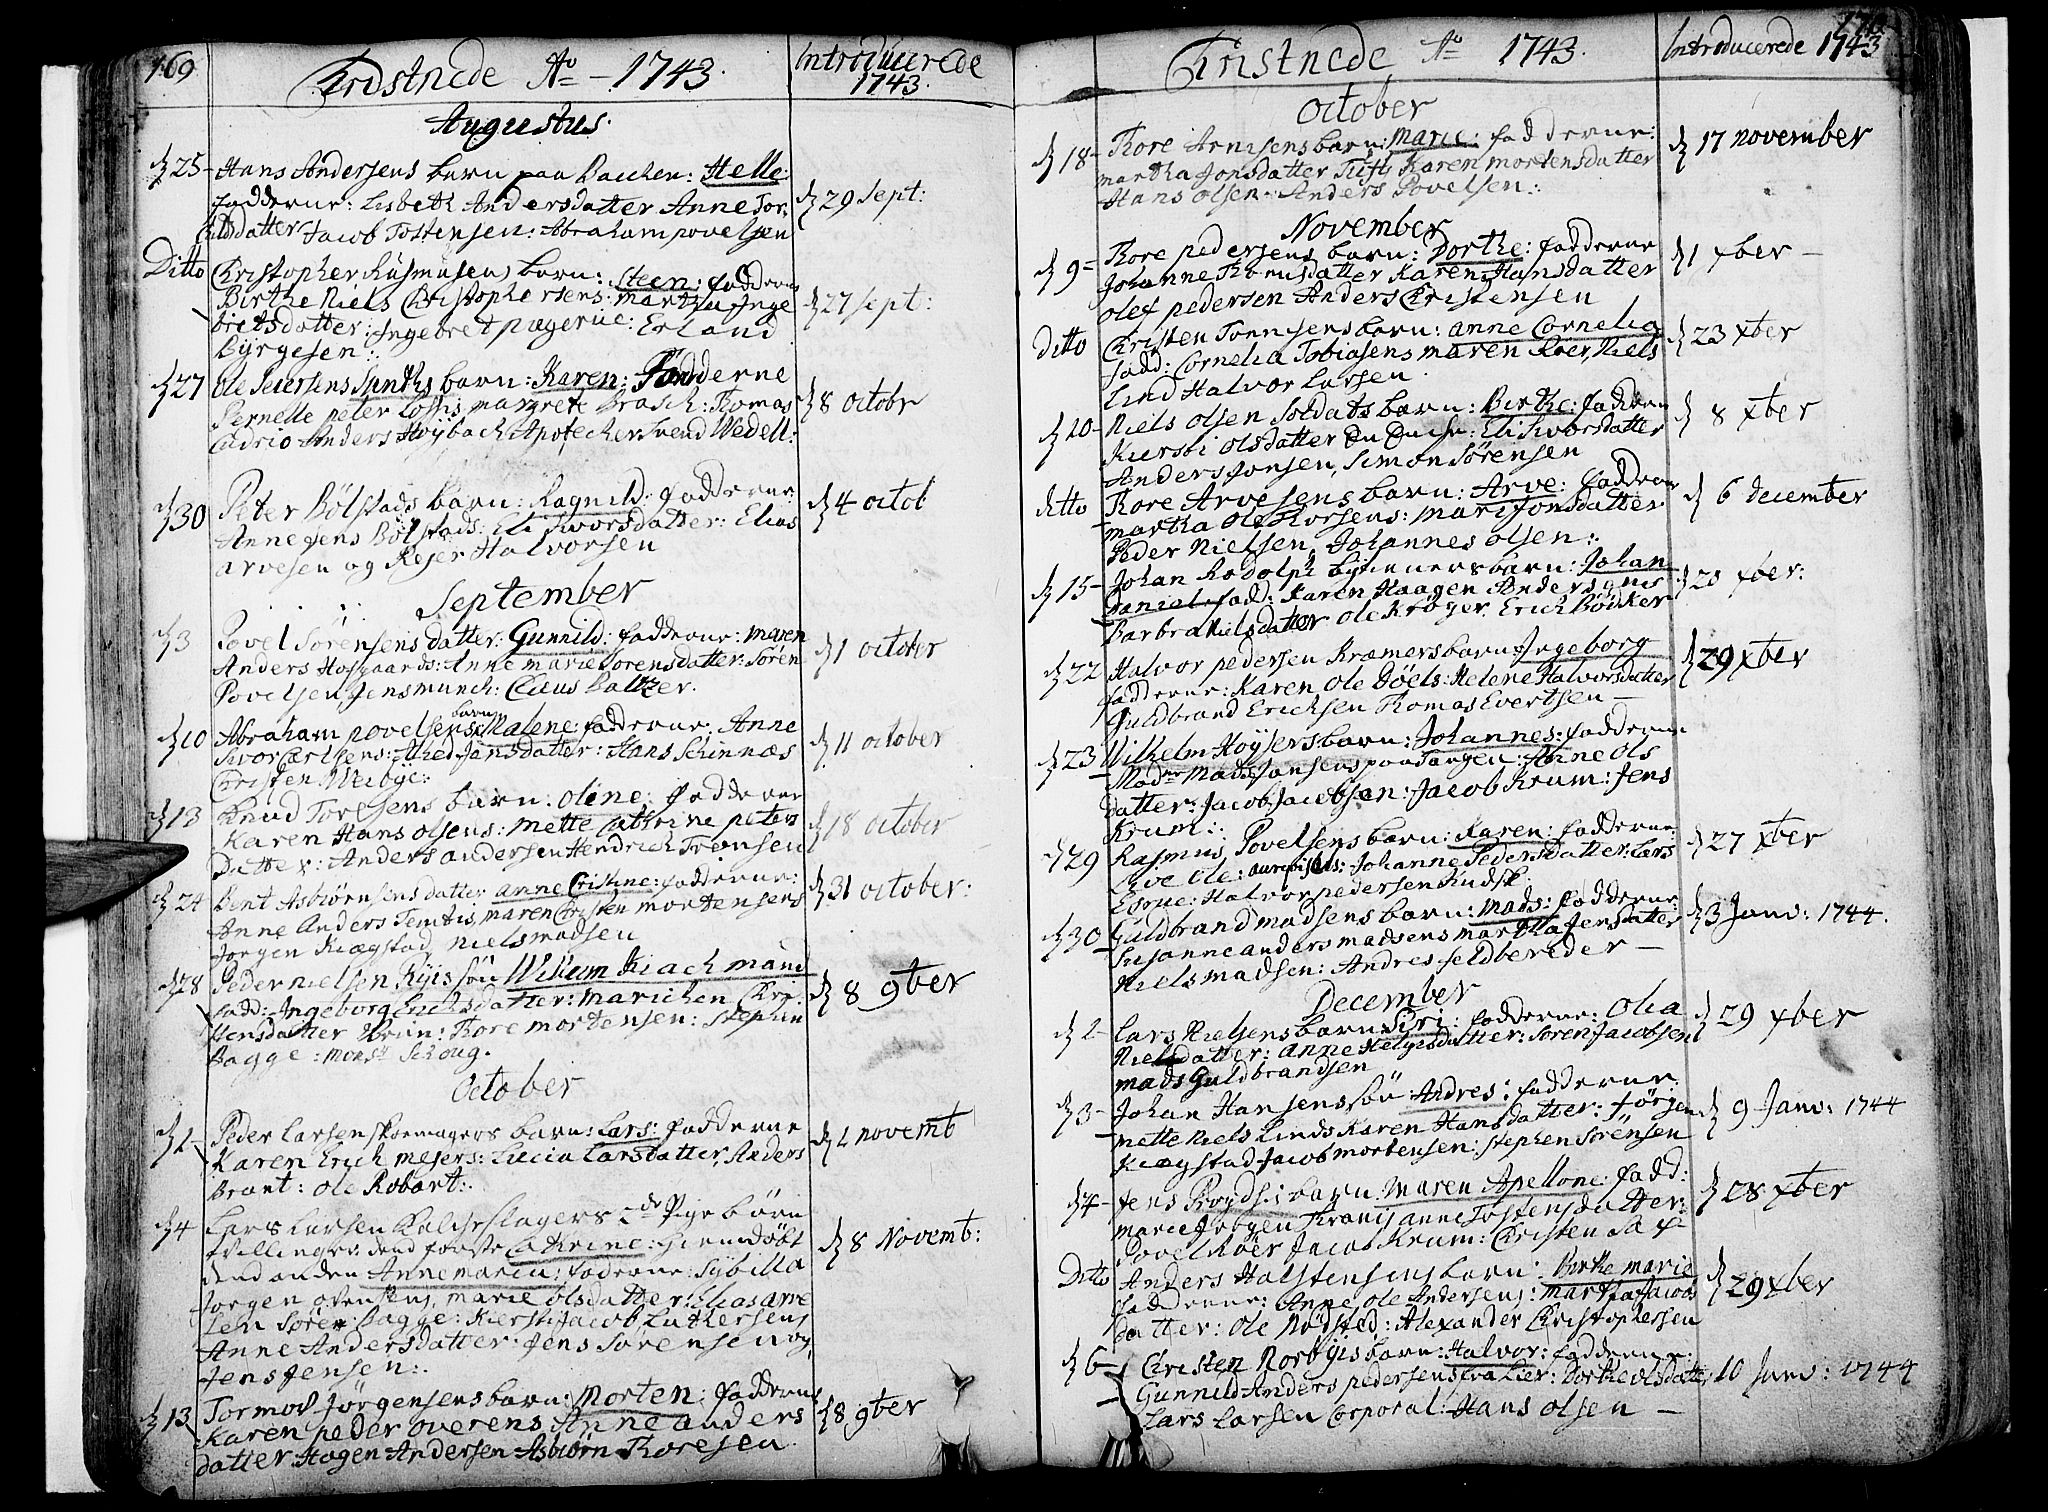 169
Cristnede Ao 1743.
Introducerede
1743.
Augustus.
25 Hans Andersens barn paa Bacchen: Helle:
fadderne: Lisbeth Andersdatter Anne Tor
datter Jacob Tostensen: Abraham povelsen
29 Sept:
Ditto Christopher Rasmusens barn: Steen: fadderne
Birthe Niels Christophersens: martha Inge
bretsdatter: Ingebret Erland
Byrgesen:
27 sept:
27 Ole barn: Karen: Fadderne
Pernelle peter margrete Brasch: Thomas
Anders Høybach Apotecher Svend Wedell:
8 octobr
30 Peter Bølstads barn: Ragnild: fadderne
Anne Jens Bølstads: Eli Sivorsdatter: Elias
arvesen og Rejer Halvorsen
4 octob
September
3 Povel Sørensens datter: Gunnild: fadderne: maren
Anders Hofgaards: Anne marie Sorensdatter: Søren
Povelsen, Jens munch: Claus Baltzer.
1 october
10 Abraham povelsens barn Malene: fadderne: Anne
Jonsdatter: Hans Schinnæs
Christen Weibye:
11 october
13 Knud Toresens barn: Oline: fadderne
Karen Hans olsens: mette Cathrine peters
Datter: Anders andersen Hendrich Tronsen
18 october
24 Bent Asbiørnsens datter anne Cristine: fadderne:
Anne Anders maren Christen mortensens
Jørgen Kiægstad, Niels madsen
31 october:
28 Peder nielsen søn Wilum
fadd: Ingeborg Erichsdatter: marichen Chri
stensdatter Brun: Thore mortensen: Stephen
Bagge: mons: Schoug.
8 9ber
October
2 Peder Larsen skoemagers barn: Lars: fadderne
Karen Erich mejers: Lucia Larsdatter, Anders
Brant: Ole Robart:
2 novemb
4 Lars Larsen 2de Pige børn
tvillinger dend første Catrine: hiemdøbt
dend anden Anne maria: fadderne: Sybilla
Jorgen marie olsdatter: Elias arve
sen Søren Bagge: Kiersti Jacob Luthersens
Anne Andersdatter: Jens Sørensen og
Jens Jensen:
8 Novemb:
13 Tormod Jørgensens barn: Morten: fadderne
Karen peder overens Anne anders
datter: Hagen Andersen Asbiørn Thoresen.
8 9ber
Cristnede Ao 1743.
Introducerede 1743
October
18 Thore Arnesens barn: Marie: fadderne:
martha Jonsdatter Tufts Karen mortensdatter
Hans olsen Anders Povelsen:
17 november
November
9 Thore pedersens barn: Dorthe: fadderne
Johanne Karen Hansdatter
olef pedersen Anders Christensen
1 xber
Ditto Christen Tønnesens barn: anne Cornelia
fadd: Cornelia Tobiasens maren Roer, Niels
Lind Halvor Larsen
23 xber
10 Niels olsen Soldats barn: Birthe: fadderne
Kiersti olsdatter Eli Siversdatter
Anders Jonsen, Simon Sörensen
8 xber
ditto Thore Arvesens barn: Arve: fadderne
martha Ole Thorsens: mari Jonsdatter
Peder Nielsen, Johannes olsen:
6 december
15 Johan Rodolph barn: Johan
Daniel fadd: Karen Haagen Anders
Barbra Nielsdatter Ole Krøger Erich Bödker
20 xber:
22 Halvor pedersen Kramers barn: Ingeborg
fadderne: Karen Ole Döels: Helene Halvorsdatter
Guldbrand Erichsen Thomas Evertsen
29 xber
23 Wilhelm Höysers barn: Johannes: fadderne
Made Jansens paa Tangen: Anne Ols
datter: Jacob Jacobsen: Jacob Krum: Jens
Krum:
29 Rasmus Povelsens barn: Karen: fadderne:
Live Ole: Johanne Pedersdatter: Lars
Halvor pedersen Kudsk
27 xber
30 Guldbrand madsens barn: Mads: fadderne
Susanne anders madsens martha Jensdatter
Niels madsen: Andres feldbereder
3 Janv: 1744.
December
2 Lars Nielsens barn Siri: fadderne: Olea
Nielsdatter: anne Helgesdatter: Soren Jacobsen
mads Guldbrandsen
29 xber
3 Johan Hansens søn Andres: fadderne
mette Niels Linds Karen Hansdatter: Jørgen
Kiægstad Jacob mortensen: Stephen Sørensen
9 Janv: 1744
4 Jens barn: Maren Apellone: fadd:
marie Jørgen anne Tostensdatter:
Povel Roer Jacob Krum: Christen
28 xber
Ditto Anders Halstensens barn: Berthe marie
fadderne: Anne Ole Andersens: martha Jacobs
datter: Ole Alexander Christophersen
29 xber
6 Christen Norbyes barn: Halvor: fadderne:
Gunnild Anders pedersens fra Lier: Dorthe olsdatter
Lars Larsen Corporal: Hans olsen
10 Janv: 1744